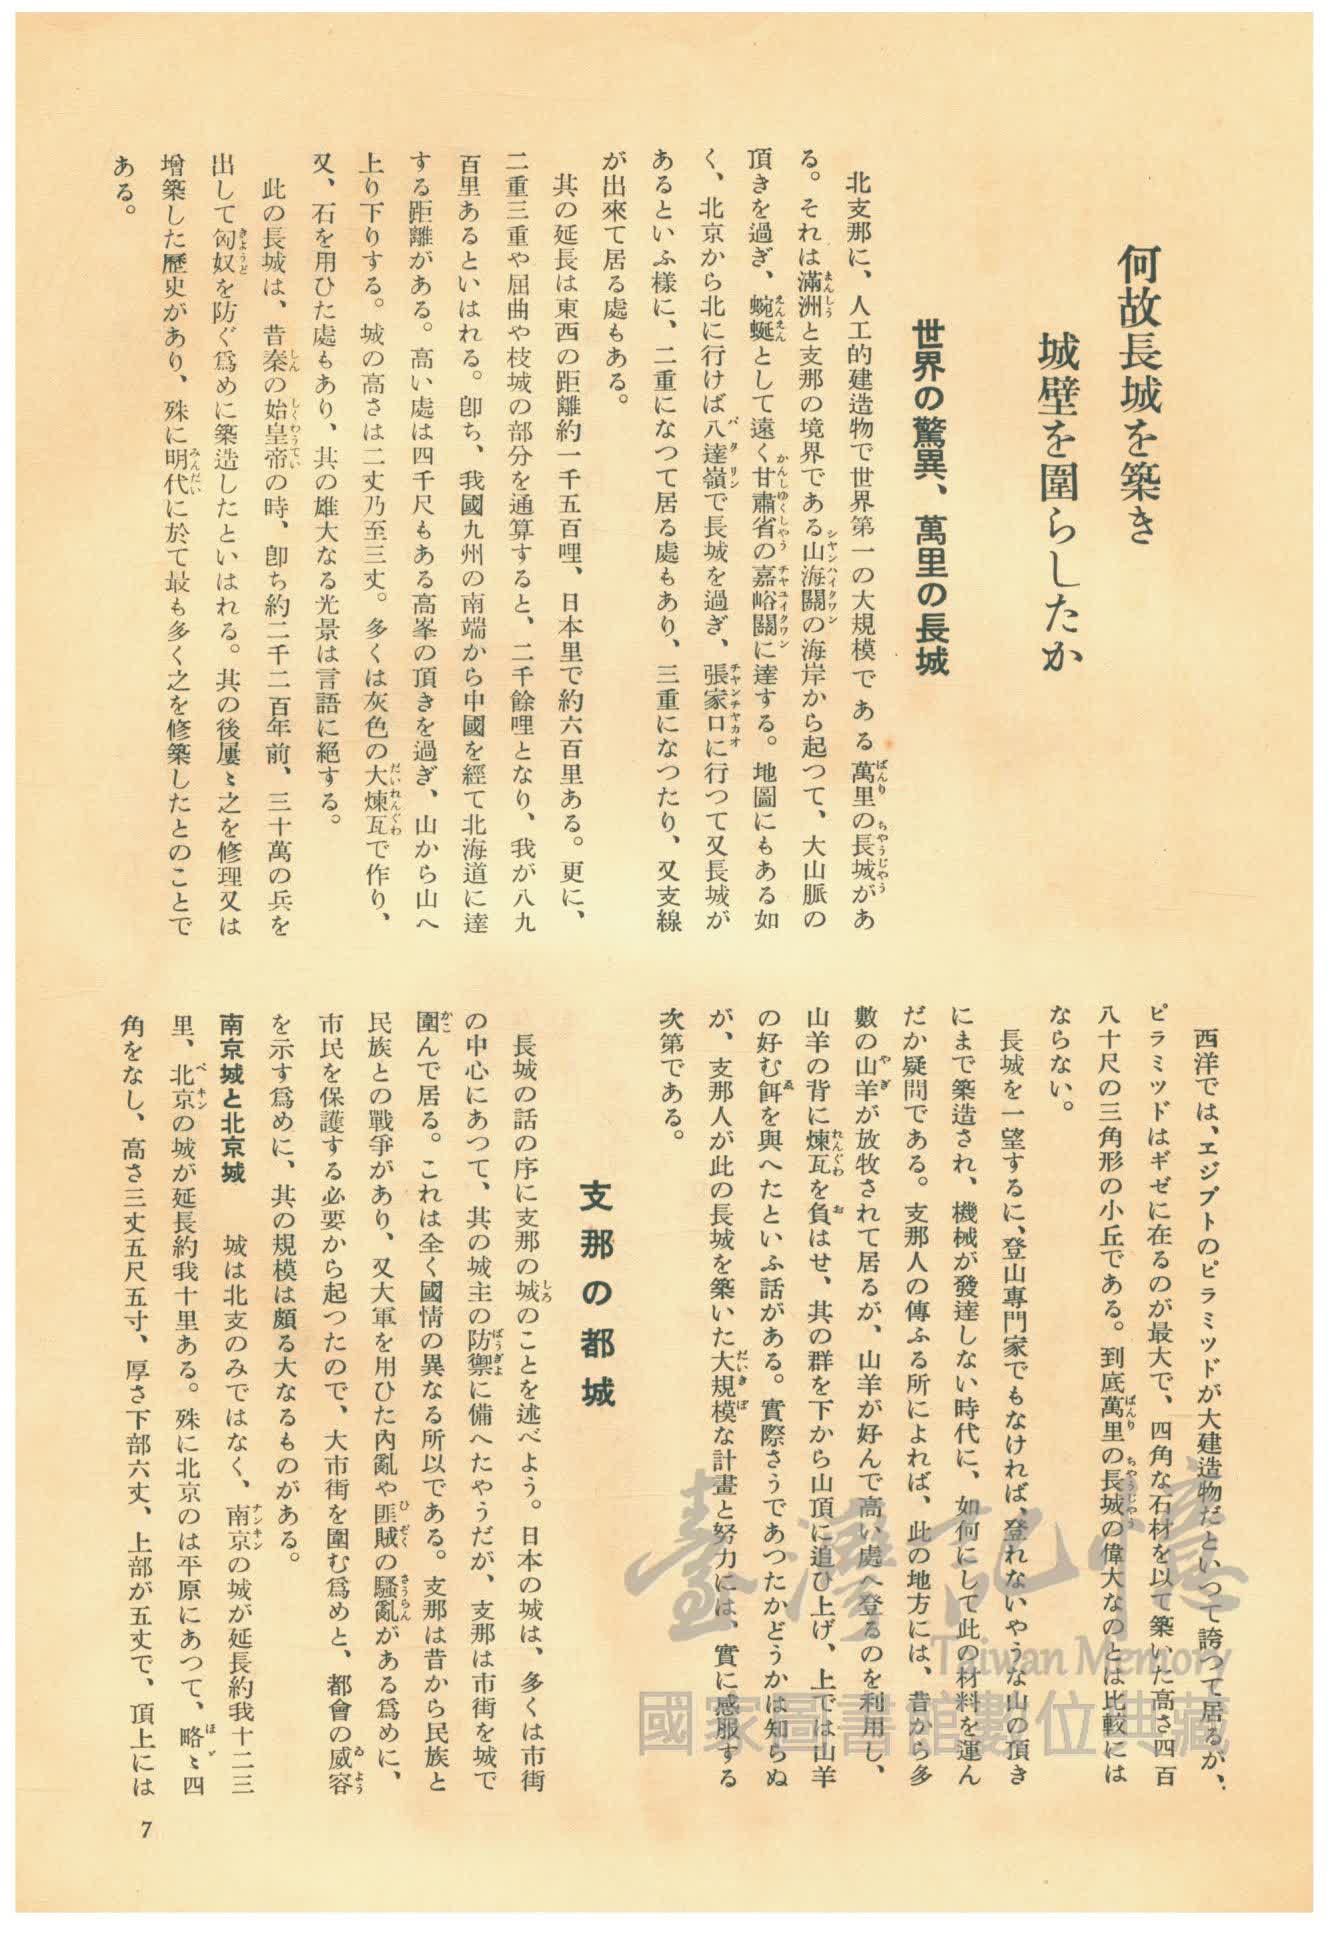 何故長城を築き
城壁を圍らしたか
世界の驚異、萬里の長城
北支那に、人工的建造物で世界第一の大規模である萬里の長城があ
る。それは滿洲と支那の境界である山海關の海岸から起つて、大山脈の
頂きを過ぎ、蜿蜒として遠く甘肅省の嘉峪關に達する。地圖にもある如
く、北京から北に行けば八達嶺で長城を過ぎ、張家口に行つて又長城が
あるといふ樣に、二重になつて居る處もあり、三重になつたり、又支線
が出來て居る處もある。
其の延長は東西の距離約一千五百哩、日本里で約六百里ある。更に、
二重三重や屈曲や枝城の部分を通算すると、二千餘哩となり、我が八九
百里あるといはれる。卽ち、我國九州の南端から中國を經て北海道に達
する距離がある。高い處は四千尺もある高峯の頂きを過ぎ、山から山へ
上り下りする。城の高さは二丈乃至三丈。多くは灰色の大煉瓦で作り、
又、石を用ひた處もあり、其の雄大なる光景は言語に絕する。
此の長城は、昔秦の始皇帝の時、卽ち約二千二百年前、三十萬の兵を
出して匈奴を防ぐ爲めに築造したといはれる。其の後屢〻之を修理又は
增築した歷史があり、殊に明代に於て最も多く之を修築したとのことで
ある。
西洋では、エジプトのピラミツドが大建造物だといつて誇つて居るが、
ピラミツドはギゼに在るのが最大で、四角な石材を以て築いた高さ四百
八十尺の三角形の小丘である。到底萬里の長城の偉大なのとは比較には
ならない。
長城を一望するに、登山專門家でもなければ、登れないやうな山の頂き
にまで築造され、機械が發達しない時代に、如何にして此の材料を運ん
だか疑問である。支那人の傳ふる所によれば、此の地方には、昔から多
數の山羊が放牧されて居るが、山羊が好んで高い處へ登るのを利用し、
山羊の背に煉瓦を負はせ、其の群を下から山頂に追ひ上げ、上では山羊
の好む餌を與へたといふ話がある。實際さうであつたかどうかは知らぬ
が、支那人が此の長城を築いた大規模な計畫と努力には、實に感服する
次第である。
支那の都城
長城の話の序に支那の城のことを述べよう。日本の城は、多くは市街
の中心にあつて、其の城主の防禦に備へたやうだが、支那は市街を城で
圍んで居る。これは全く國情の異なる所以である。支那は昔から民族と
民族との戰爭があり、又大軍を用ひた內亂や匪賊の騷亂がある爲めに、
市民を保護する必要から起つたので、大市街を圍む爲めと、都會の威容
を示す爲めに、其の規模は頗る大なるものがある。
南京城と北京城 城は北支のみではなく、南京の城が延長約我十二三
里、北京の城が延長約我十里ある。殊に北京のは平原にあつて、略〻四
角をなし、高さ三丈五尺五寸、厚さ下部六丈、上部が五丈で、頂上には
7
臺灣記憶
Taiwan Memory
國家圖書館數位典藏